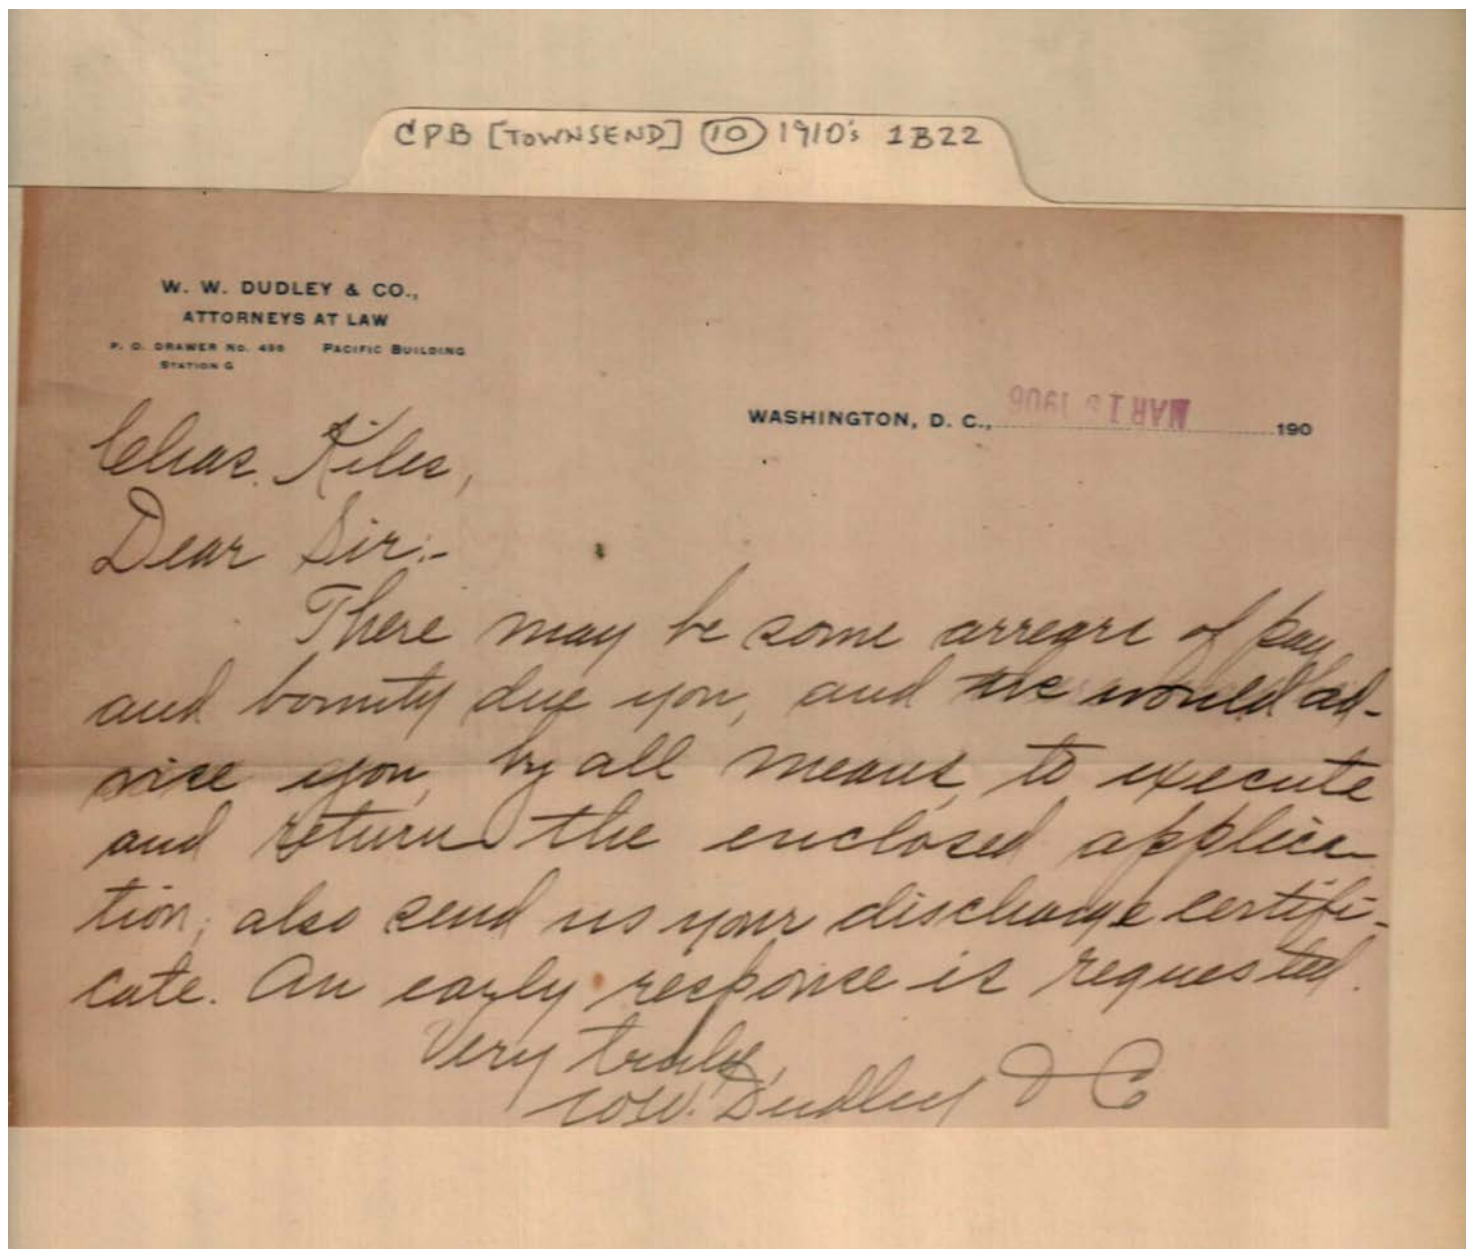 CPB [TOWNSEND] 10 1910's 1B22
W. W. DUDLEY & CO.,
ATTORNEYS AT LAW
P. O. DRAWER NO. PACIFIC BUILDING
STATION G
MAR 1 1906
WASHINGTON, D. C., 190
Chas. Kiles,
Dear Sir:-
There may be some arrears of pay
and bounty due you, and we would ad-
vise you, by all means, to execute
and return the enclosed applica-
tion; also send us your discharge certifi-
cate. An early response is requested.
Very truly,
W.W. Dudley & Co